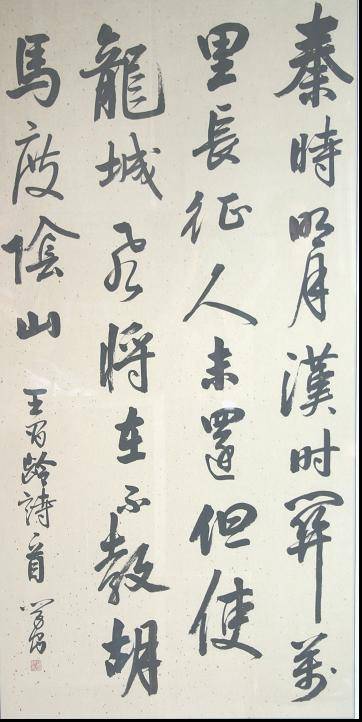 秦時明月漢时關萬
里長征人未還但使
龍城飛將在不教胡
馬度陰山
王昌齡詩一首